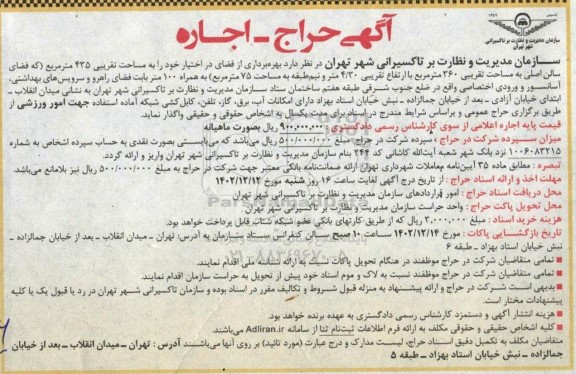 آگهی حراج - اجاره
تاسیس ۱۳۷۱
سازمان مدیریت و نظارت بر تاکسیرانی
شهر تهران
سازمان مدیریت و نظارت بر تاکسیرانی شهر تهران در نظر دارد بهره‌برداری از فضای در اختیار خود را به مساحت تقریبی ۴۳۵ مترمربع (که فضای
سالن اصلی به مساحت تقریبی ۳۶۰ مترمربع با ارتفاع تقریبی ۴/۳۰ متر و نیم‌طبقه به مساحت ۷۵ مترمربع) به همراه ۱۰۰ متر بابت فضای راهرو و سرویس‌های بهداشتی،
آسانسور و ورودی اختصاصی واقع در ضلع جنوب شرقی طبقه هفتم ساختمان ستاد سازمان مدیریت و نظارت بر تاکسیرانی شهر تهران به نشانی میدان انقلاب -
ابتدای خیابان آزادی - بعد از خیابان جمالزاده - نبش خیابان استاد بهزاد دارای امکانات آب، برق، گاز، تلفن، کابل‌کشی شبکه آماده استفاده جهت امور ورزشی از
طریق برگزاری حراج عمومی و براساس شرایط مندرج در اسناد برای مدت یکسال به اشخاص حقوقی و حقیقی واگذار نماید.
قیمت پایه اجاره اعلامی از سوی کارشناس رسمی دادگستری ۹۰۰,۰۰۰,۰۰۰ ریال بصورت ماهیانه
میزان سپرده شرکت در حراج: سپرده شرکت در حراج مبلغ ۵۰۰/۰۰۰/۰۰۰ ریال می‌باشد که می‌بایستی بصورت نقدی به حساب سپرده اشخاص به شماره
۱۰۰۶۰۸۳۲۱۵ نزد بانک شهر شعبه آیت‌الله کاشانی کد ۲۴۴ بنام سازمان مدیریت و نظارت بر تاکسیرانی شهر تهران واریز و ارائه گردد.
تبصره: مطابق ماده ۳۵ آیین‌نامه معاملات شهرداری تهران ارائه ضمانت‌نامه بانکی معتبر جهت شرکت در حراج به مبلغ ۵۰۰/۰۰۰/۰۰۰ ریال نیز بلامانع می‌باشد.
مهلت اخذ و ارائه اسناد حراج: از تاریخ درج آگهی لغایت ساعت ۱۶ روز شنبه مورخ ۱۴۰۲/۱۲/۱۲
محل دریافت اسناد حراج: امور قراردادهای سازمان مدیریت و نظارت بر تاکسیرانی شهر تهران
محل تحویل پاکت حراج: واحد حراست سازمان مدیریت و نظارت بر تاکسیرانی شهر تهران
هزینه خرید اسناد: مبلغ ۳,۰۰۰,۰۰۰ ریال که از طریق کارتهای بانکی عضو شبکه شتاب قابل پرداخت خواهد بود.
تاریخ بازگشایی پاکات: مورخ ۱۴۰۲/۱۲/۱۴ ساعت ۱۰ صبح سالن کنفرانس ستاد سازمان به آدرس: تهران - میدان انقلاب - بعد از خیابان جمالزاده -
نبش خیابان استاد بهزاد - طبقه ۶
تمامی متقاضیان شرکت در حراج موظفند در هنگام تحویل پاکات نسبت به ارائه شناسه ملی اقدام نمایند.
تمامی متقاضیان شرکت در حراج موظفند نسبت به لاک و مهر اسناد خود پیش از تحویل به حراست سازمان اقدام نمایند.
بدیهی است شرکت در حراج و ارائه پیشنهاد به منزله قبول شروط و تکالیف مقرر در اسناد بوده و سازمان تاکسیرانی شهر تهران در رد یا قبول یک یا کلیه
پیشنهادات مختار است.
هزینه انتشار آگهی و دستمزد کارشناس رسمی دادگستری به عهده برنده خواهد بود.
کلیه اشخاص حقیقی و حقوقی مکلف به ارائه فرم اطلاعات ثبت‌نام ثنا از سامانه Adliran.ir می‌باشند.
متقاضیان مکلف به تکمیل دقیق اسناد حراج، لیست مدارک و درج عبارت (مورد تائید) بر روی آنها می‌باشند آدرس: تهران - میدان انقلاب - بعد از خیابان
جمالزاده - نبش خیابان استاد بهزاد - طبقه ۵